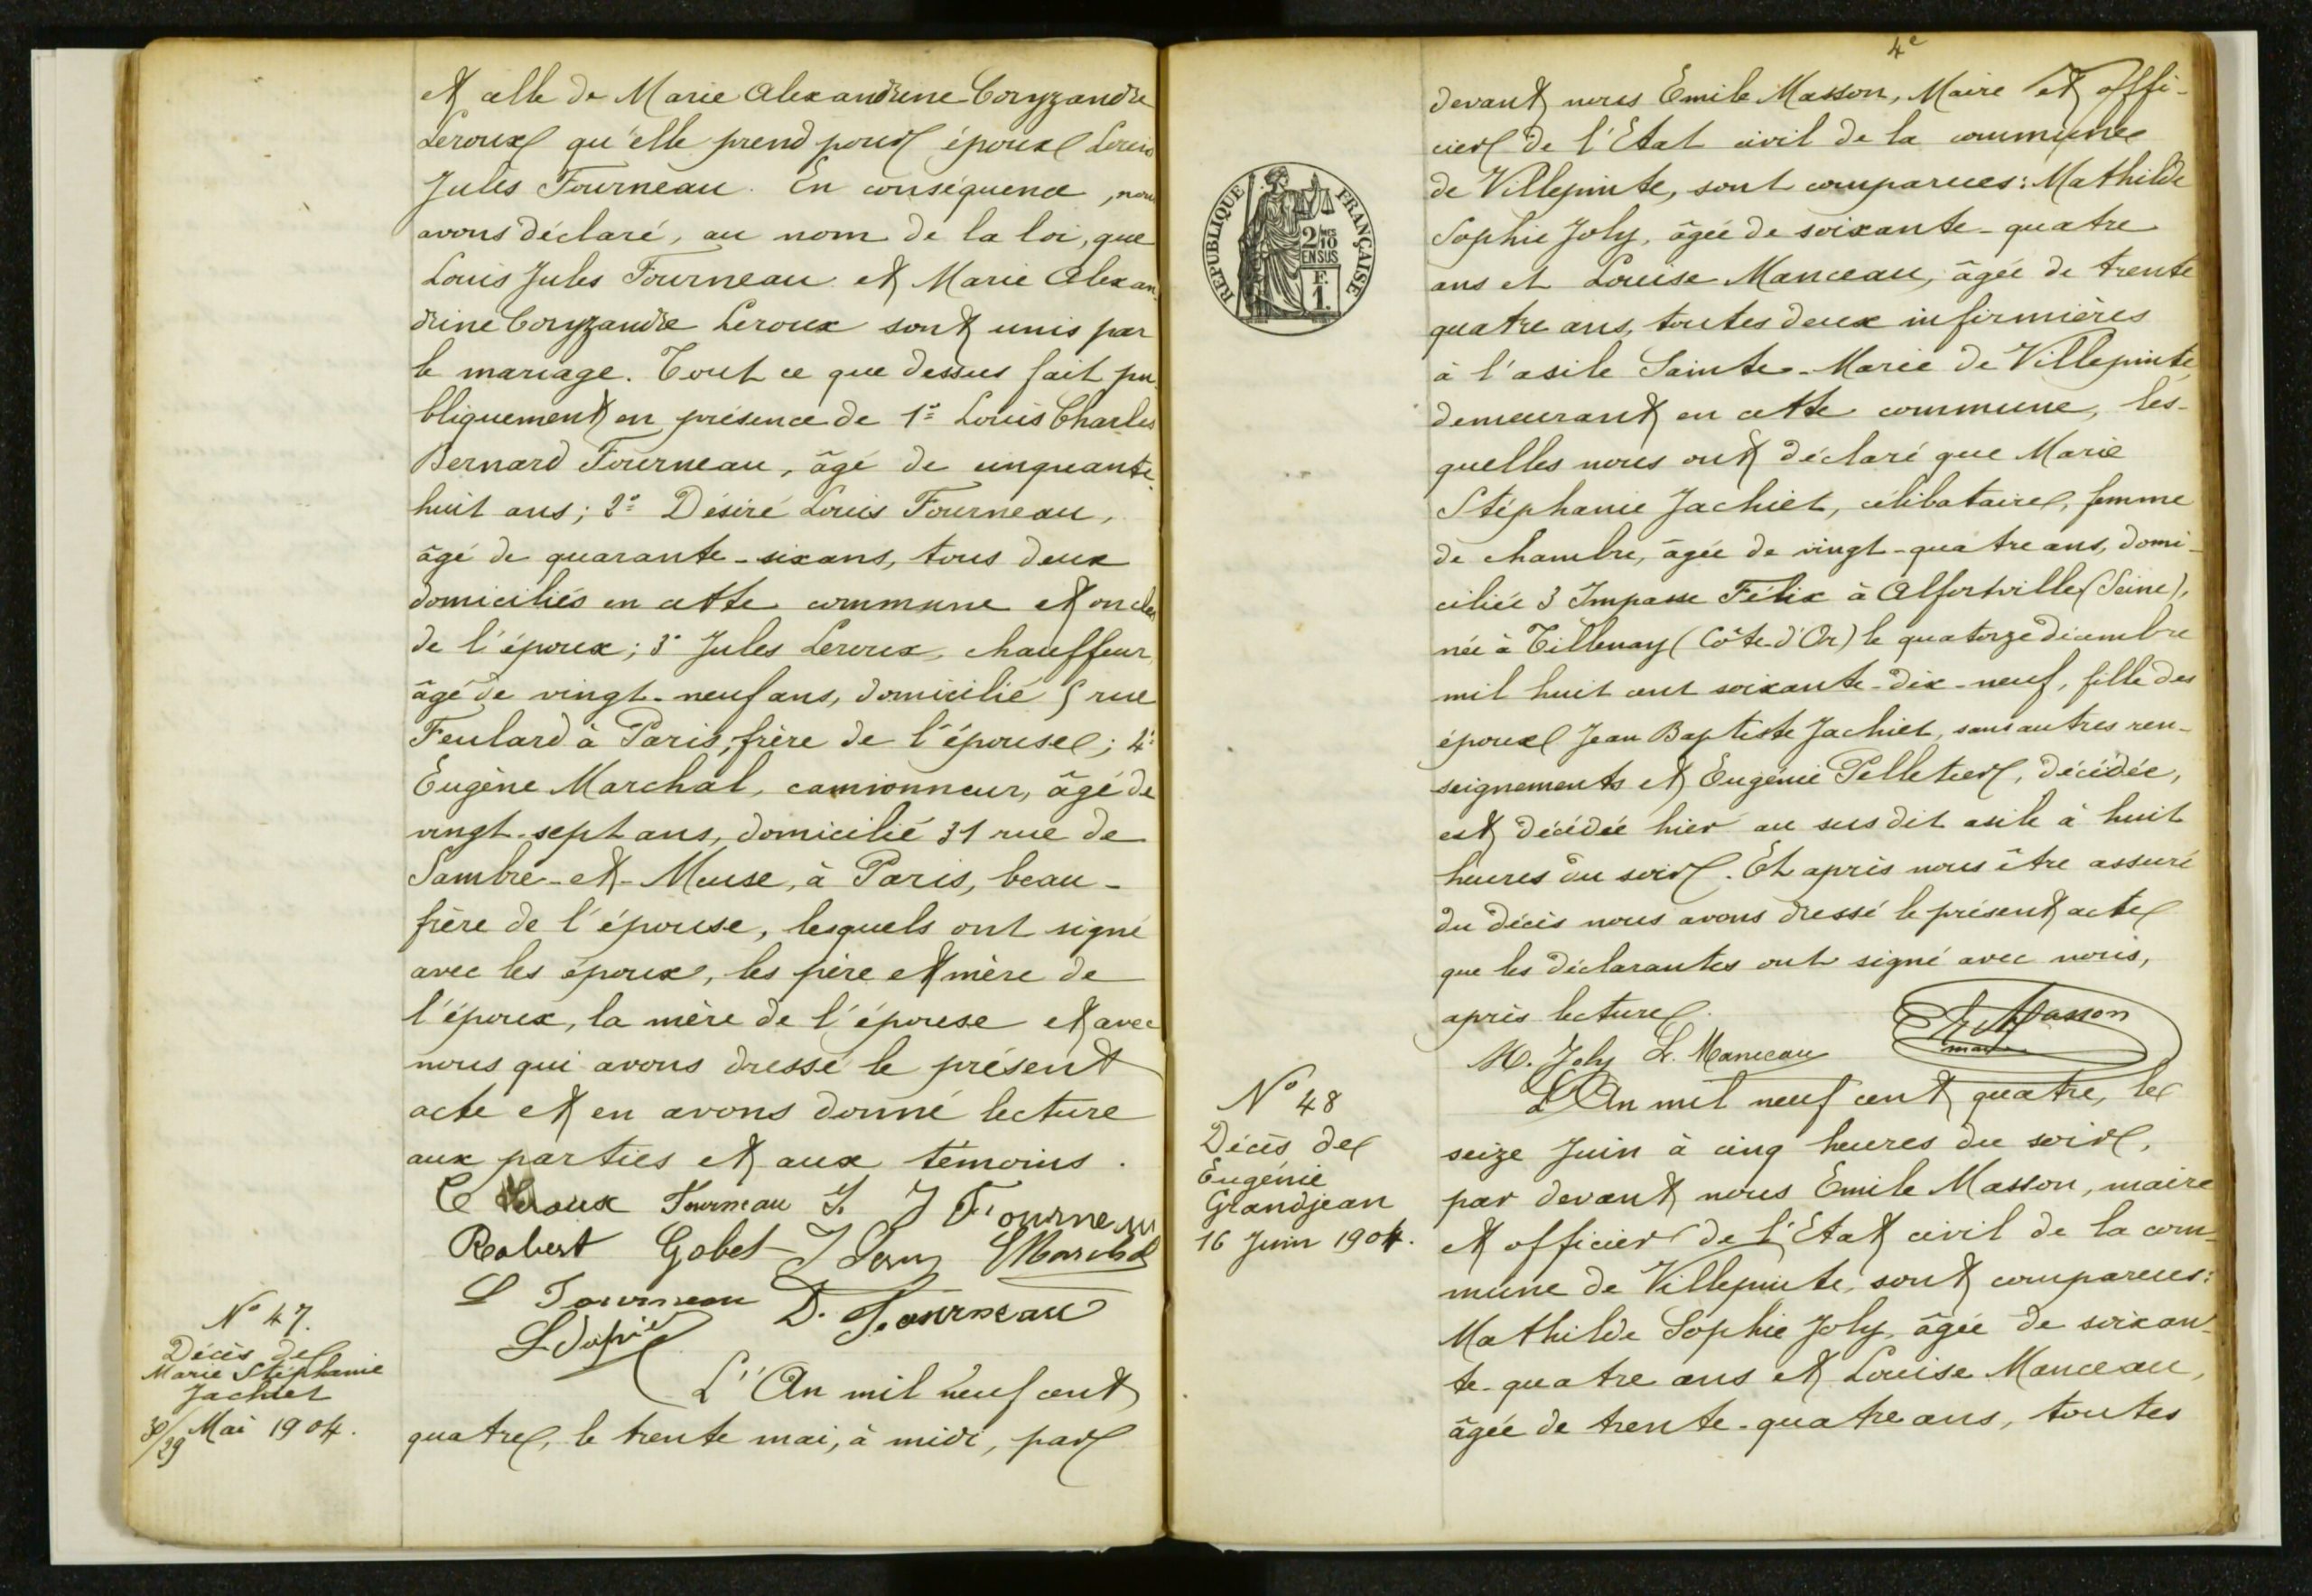 et celle de Marie Alexandrine Coryzandre
Leroux qu'elle prend pour époux Louis
Jules Fourneau. En conséquence, nous
avons déclaré, au nom de la loi, que
Louis Jules Fourneau et Marie Alexan-
drine Coryzandre Leroux sont unis par
le mariage. Tout ce que dessus fait pu-
bliquement en présence de 1º Louis Charles
Bernard Fourneau, âgé de cinquante-
huit ans; 2º Désiré Louis Fourneau,
âgé de quarante-six ans, tous deux
domiciliés en cette commune et oncles
de l'époux; 3º Jules Leroux, chauffeur
âgé de vingt-neuf ans, domicilié 5 rue
Feulard à Paris, frère de l'épouse; 4º
Eugène Marchal, camionneur, âgé de
vingt-sept ans, domicilié 31 rue de
Sambre-et-Meuse, à Paris, beau-
frère de l'épouse, lesquels ont signé
avec les époux, les père et mère de
l'époux, la mère de l'épouse et avec
nous qui avons dressé le présent
acte et en avons donné lecture
aux parties et aux témoins.
C Leroux Fourneau J. J Fourneau
Robert Gobet J Leroux EMarchal
L Fourneau D. Fourneau
Nº 47.
Décès de
Marie Stéphanie
Jachiet
30/29 Mai 1904.
L'An mil neuf cent
quatre, le trente mai, à midi, par
4e
devant nous Emile Masson, Maire et offi-
cier de l'Etat civil de la commune
de Villepinte, sont comparues: Mathilde
Sophie Joly, âgée de soixante-quatre
ans et Louise Manceau, âgée de trente
quatre ans, toutes deux infirmières
à l'asile Sainte-Marie de Villepinte
demeurant en cette commune, les-
quelles nous ont déclaré que Marie
Stéphanie Jachiet, célibataire, femme
de chambre, âgée de vingt-quatre ans, domi-
ciliée 3 Impasse Félix à Alfortville (Seine),
née à Tillenay (Côte-d'Or) le quatorze décembre
mil huit cent soixante-dix-neuf, fille des
époux Jean Baptiste Jachiet, sans autres ren-
seignements et Eugénie Pelletier, décédée,
est décédée hier au susdit asile à huit
heures du soir. Et après nous être assuré
du décès nous avons dressé le présent acte
que les déclarantes ont signé avec nous,
après lecture.
M. Joly L. Manceau Masson
RÉPUBLIQUE FRANÇAISE
2/10
EN SUS
F.
1.
Nº 48
Décès de
Eugénie
Grandjean
16 Juin 1904.
L'An mil neuf cent quatre, le
seize Juin à cinq heures du soir,
par devant nous Emile Masson, maire
et officier de l'Etat civil de la com-
mune de Villepinte, sont comparues:
Mathilde Sophie Joly, âgée de soixan-
te-quatre ans et Louise Manceau,
âgée de trente-quatre ans, toutes